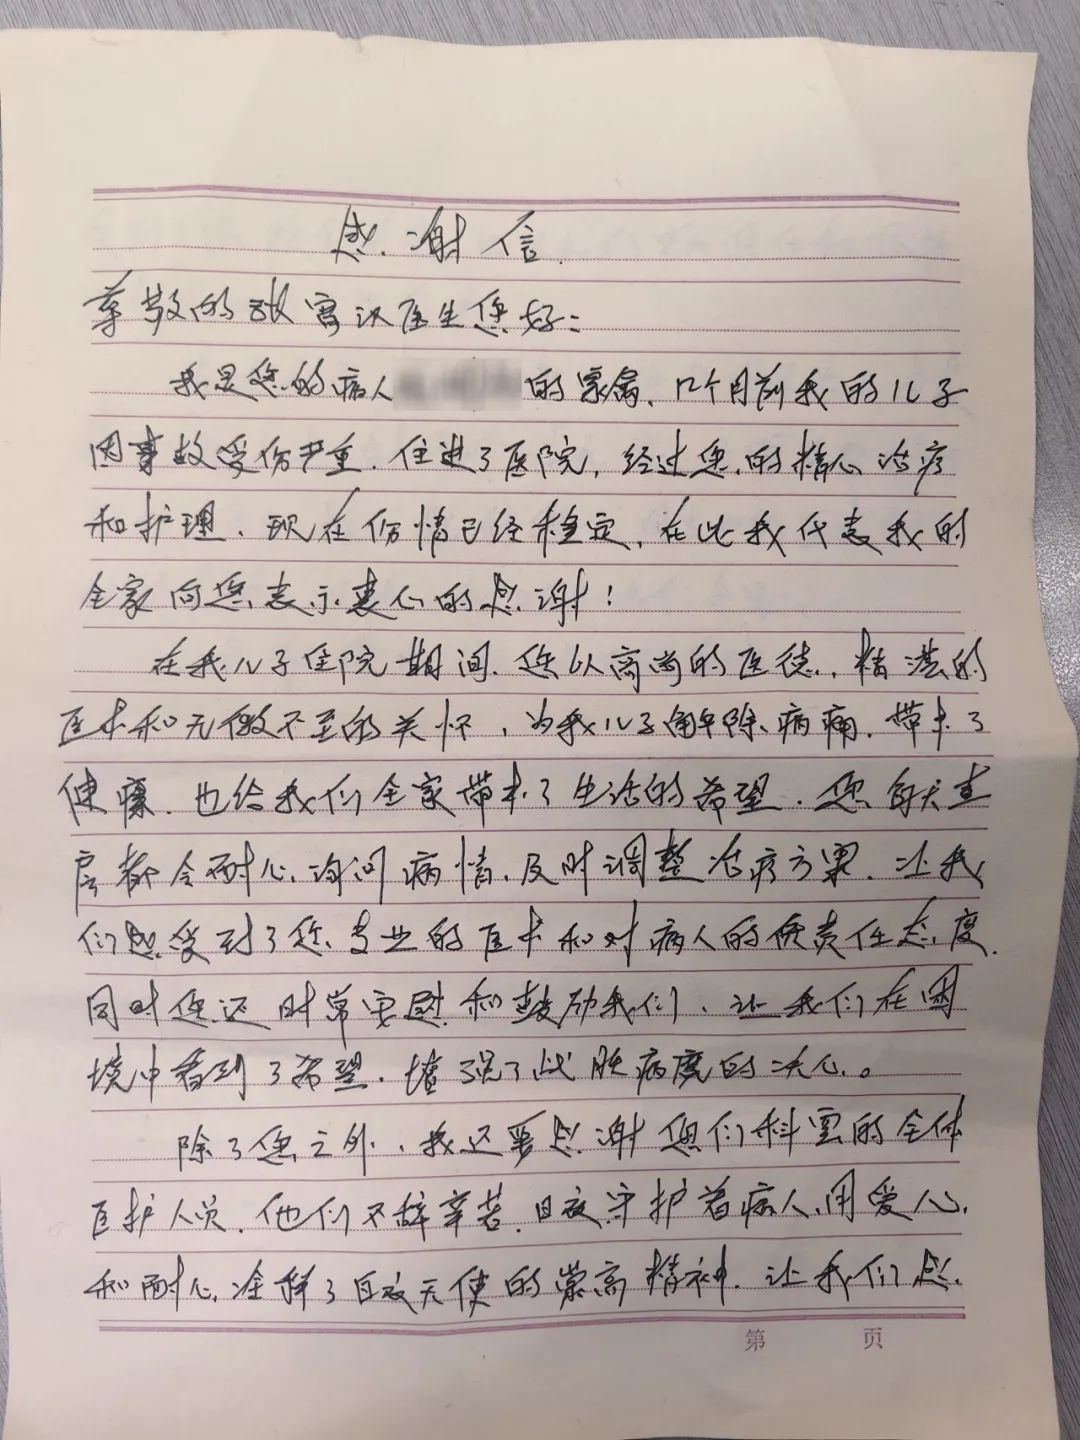 感谢信
尊敬的张寓汉医生您好:
我是您的病人 的家属、12个月前我的儿子
因事故受伤严重.住进了医院,经过您的精心治疗
和护理、现在伤情已经稳定,在此我代表我的
全家向您表示衷心的感谢!
在我儿子住院期间.您以高尚的医德,精湛的
医术和无微不至的关怀,为我儿子解除病痛.带来了
健康.也给我们全家带来了生活的希望.您每天查
房都会耐心询问病情,及时调整治疗方案.让我
们感受到了您专业的医术和对病人的负责任态度.
同时您还时常安慰和鼓励我们、让我们在困
境中看到了希望.增强了战胜病魔的决心。
除了您之外,我还要感谢您们科室的全体
医护人员.他们不辞辛苦.日夜守护着病人,用爱心
和耐心诠释了白衣天使的崇高精神.让我们感
第 页